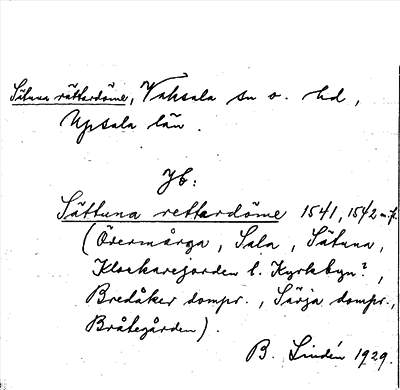 Sätuna rättardöme, Vaksala sn o. hd,
Upsala län.
Jb:
Sättuna rettardöme 1541, 1542 m.fl.
(Övermårga, Sala, Sätuna,
Klockarejorden i Kyrkbyn?,
Bredåker dompr., Särja dompr.,
Bråtegården).
B. Lindén 1929.